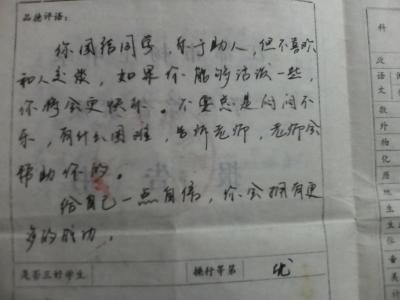 品德评语:
你团结同学,乐于助人,但不喜欢
和人交谈,如果你能够活泼一些,
你将会更快乐。不要总是闷闷不
乐,有什么困难,告诉老师,老师会
帮助你的。
给自己一点自信,你会拥有更
多的胜力。
是否三好学生
操行等第 优
报告
科
政
语
文
数
外
物
化
历
地
生
生
音
美